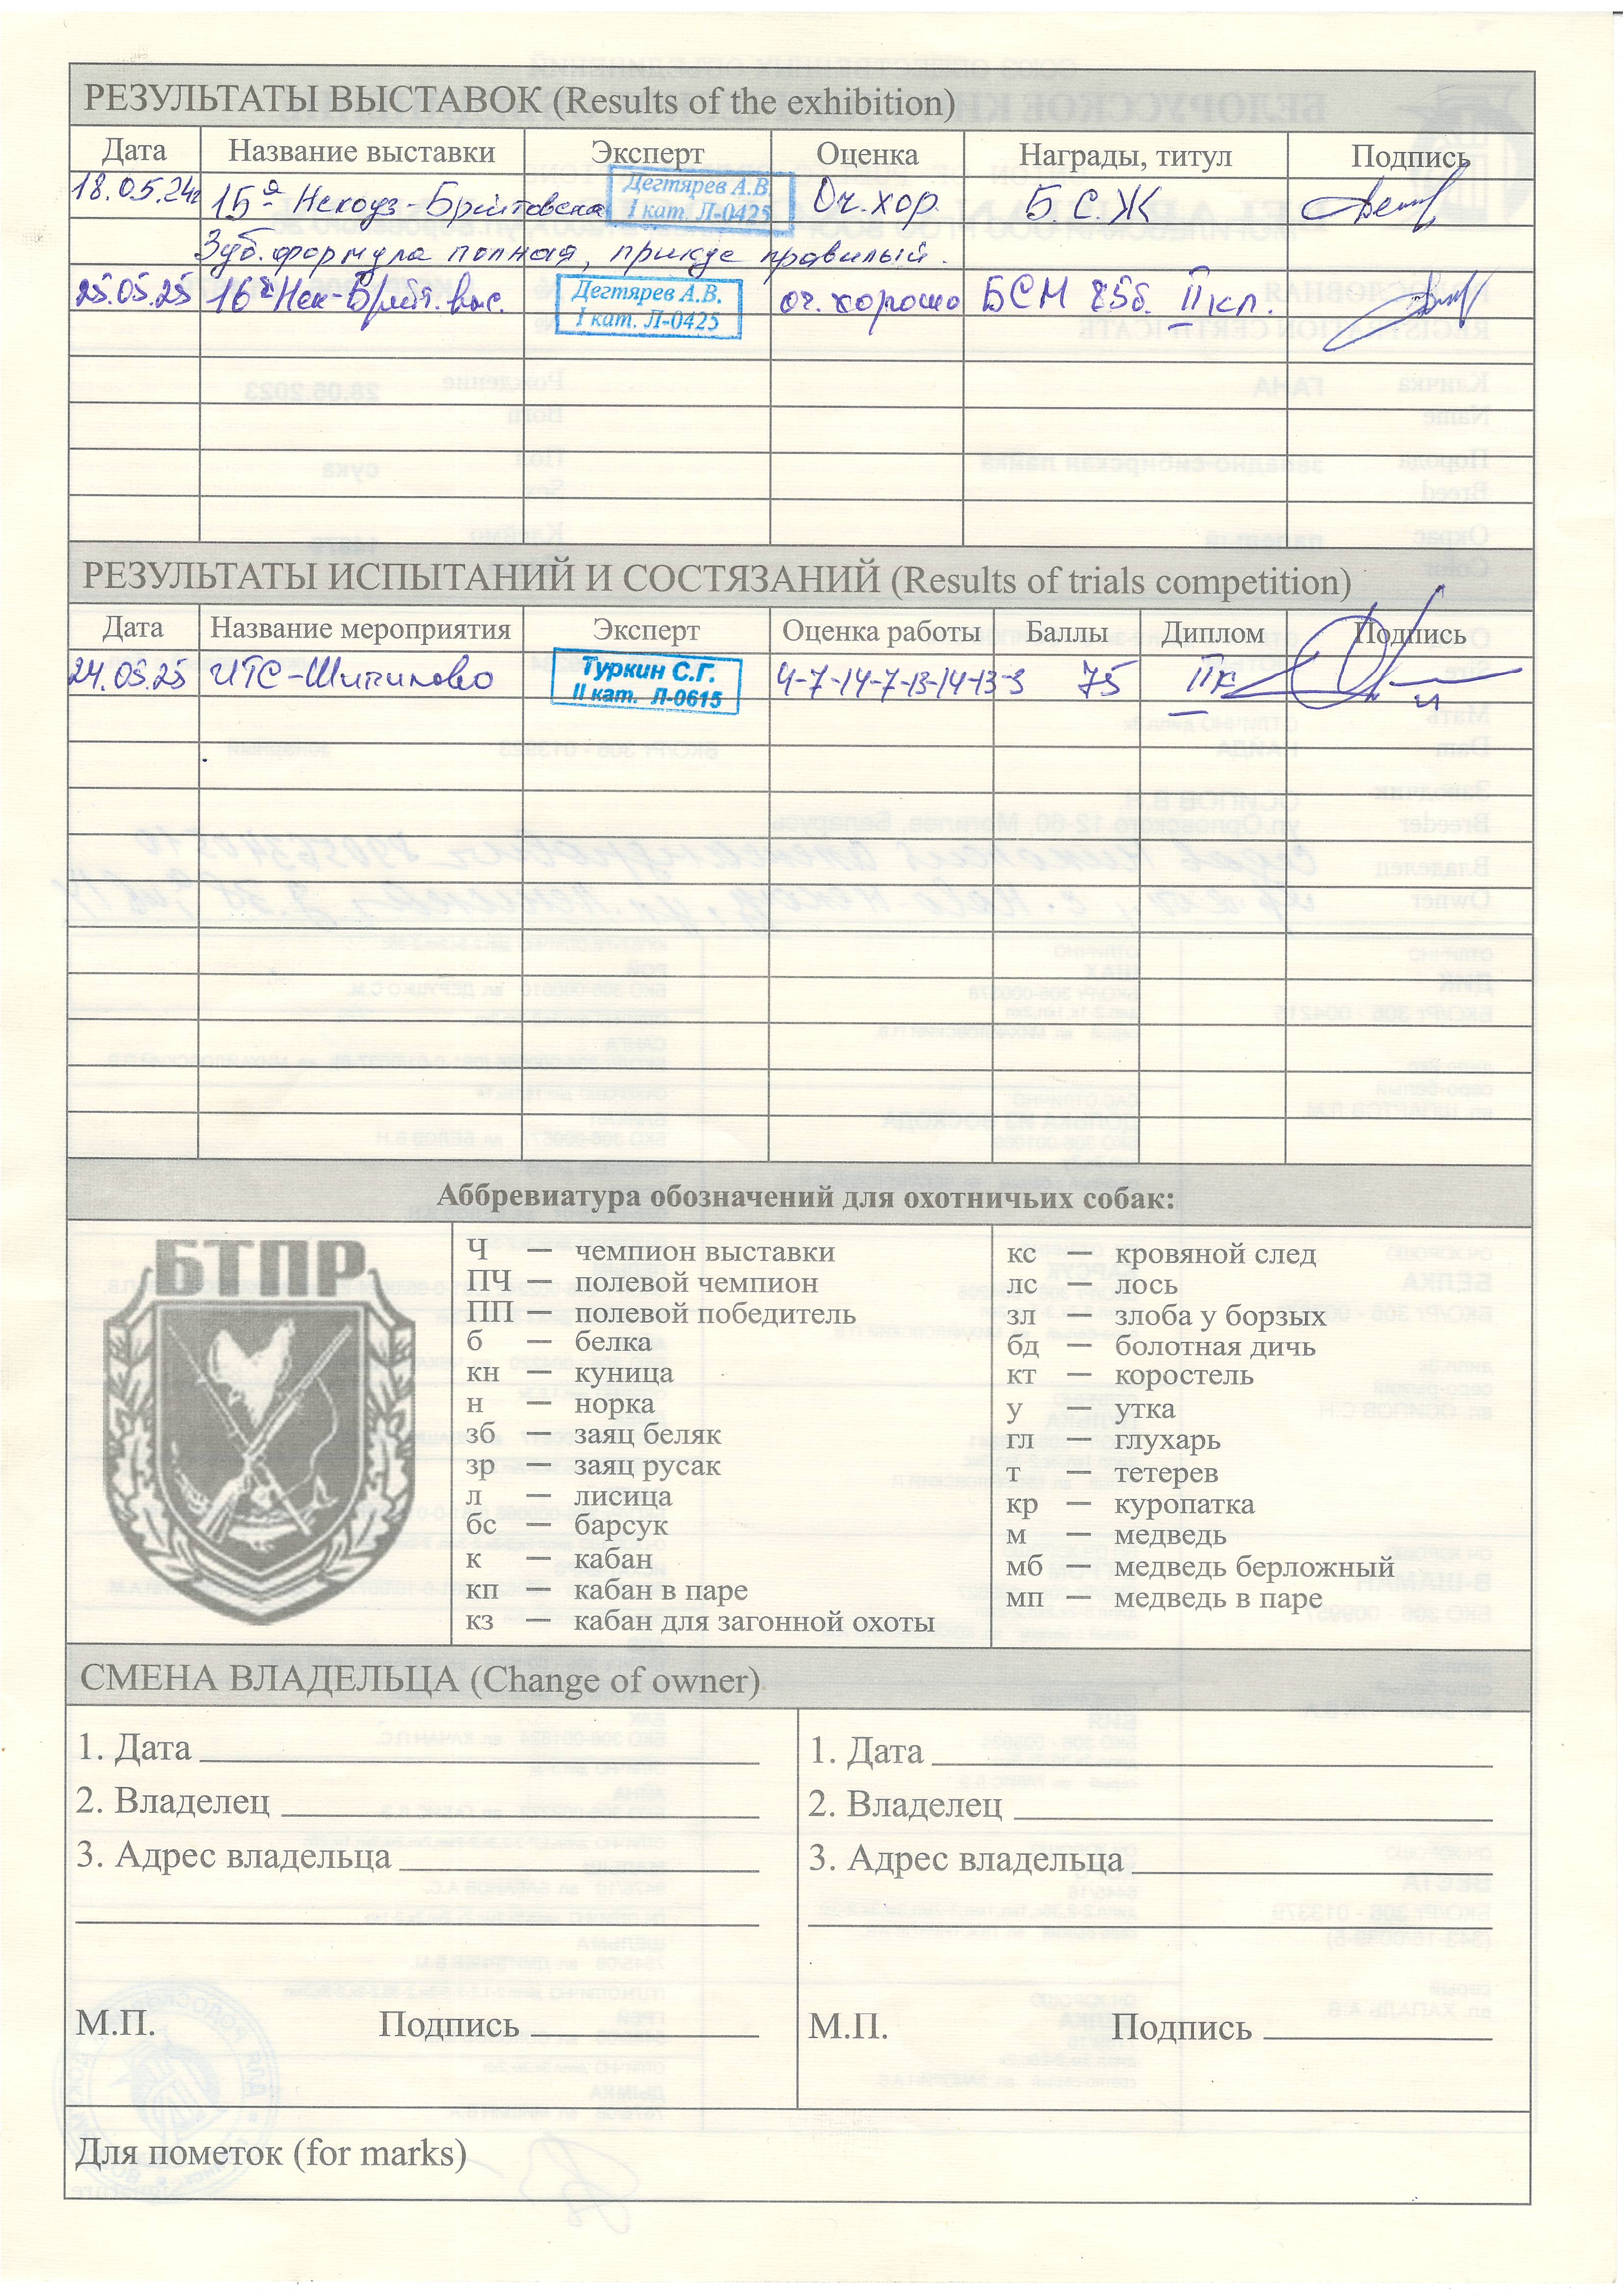 РЕЗУЛЬТАТЫ ВЫСТАВОК (Results of the exhibition)
Дата Название выставки Эксперт Оценка Награды, титул Подпись
18.05.24г 15я Некоуз-Брейтовская Дегтярев А.В. I кат. Л-0425 Оч.хор. Б.С.Ж
Зуб.формула полная, прикус правилый.
25.05.25 16я Нек-Брейт.выс. Дегтярев А.В. I кат. Л-0425 оч.хорошо БСМ 85б. II кл.
РЕЗУЛЬТАТЫ ИСПЫТАНИЙ И СОСТЯЗАНИЙ (Results of trials competition)
Дата Название мероприятия Эксперт Оценка работы Баллы Диплом Подпись
24.05.25 ИТС-Шипилово Туркин С.Г. II кат. Л-0615 4-7-14-7-13-14-13-3 75 IIк
Аббревиатура обозначений для охотничьих собак:
БТПР
Ч — чемпион выставки
ПЧ — полевой чемпион
ПП — полевой победитель
б — белка
кн — куница
н — норка
зб — заяц беляк
зр — заяц русак
л — лисица
бс — барсук
к — кабан
кп — кабан в паре
кз — кабан для загонной охоты
кс — кровяной след
лс — лось
зл — злоба у борзых
бд — болотная дичь
кт — коростель
у — утка
гл — глухарь
т — тетерев
кр — куропатка
м — медведь
мб — медведь берложный
мп — медведь в паре
СМЕНА ВЛАДЕЛЬЦА (Change of owner)
1. Дата
2. Владелец
3. Адрес владельца
М.П. Подпись
1. Дата
2. Владелец
3. Адрес владельца
М.П. Подпись
Для пометок (for marks)